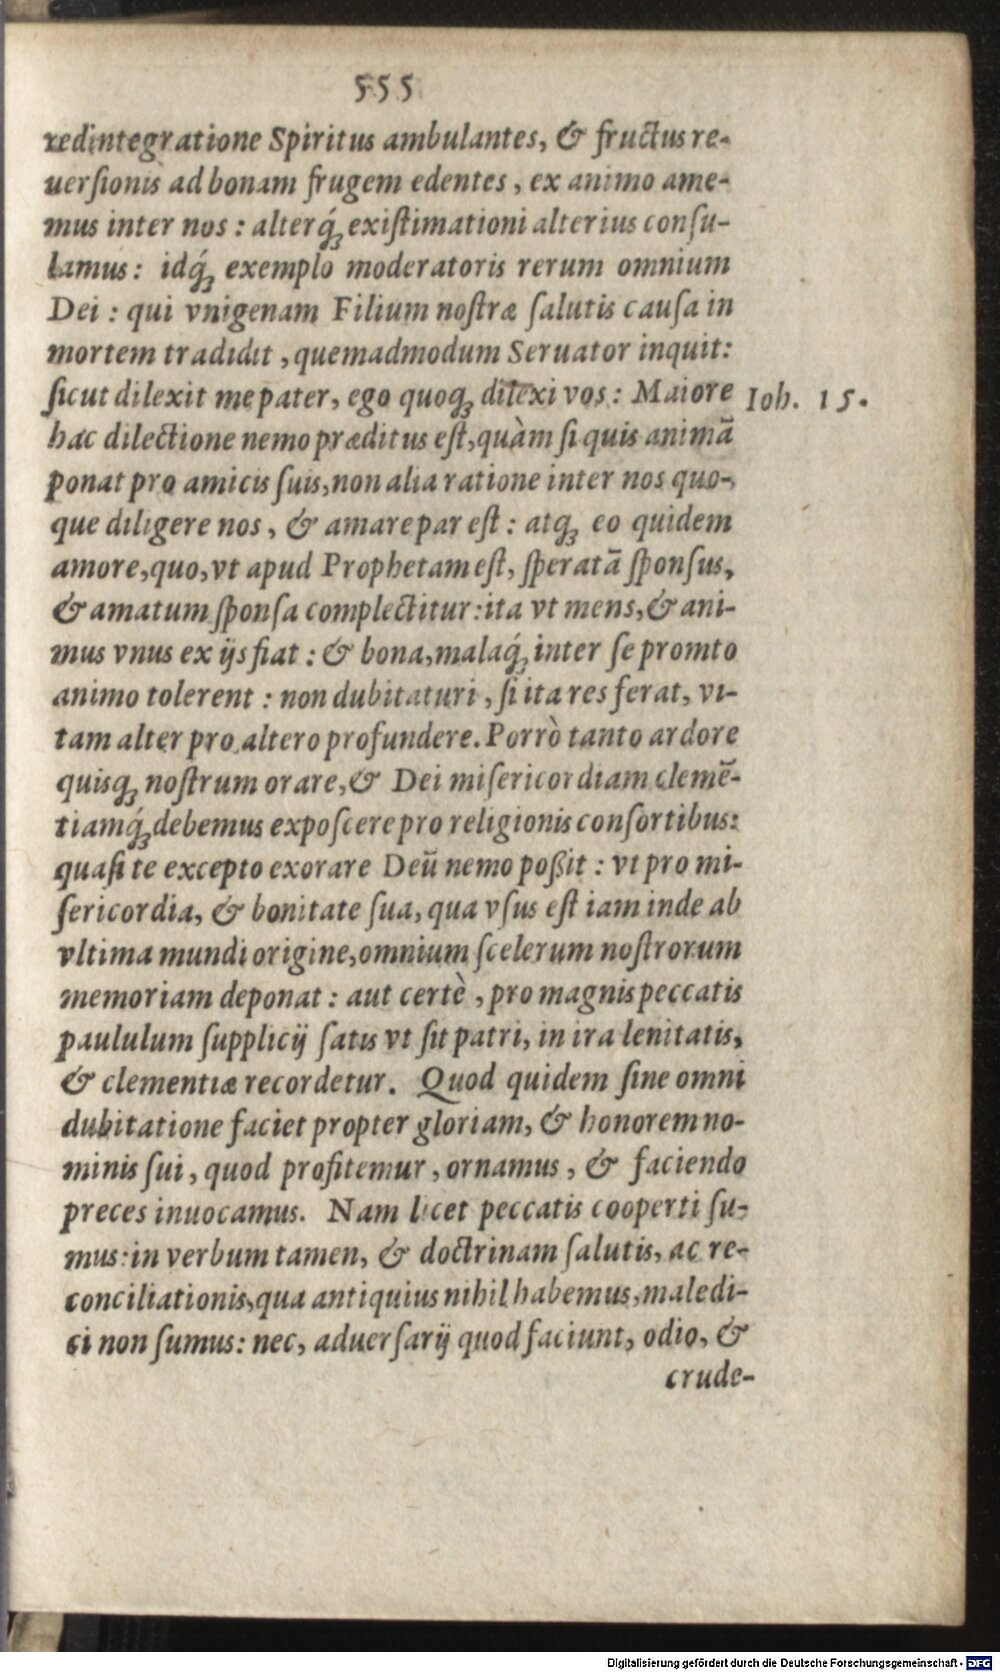 555
redintegratione Spiritus ambulantes, & fructus re-
uerſionis ad bonam frugem edentes, ex animo ame-
mus inter nos: alterq́ꝫ exiſtimationi alterius conſu-
lamus: idq́ꝫ exemplo moderatoris rerum omnium
Dei: qui vnigenam Filium noſtræ ſalutis cauſa in
mortem tradidit, quemadmodum Seruator inquit:
ſicut dilexit me pater, ego quoqꝫ dilexi vos: Maiore
Ioh. 15.
hac dilectione nemo præditus eſt, quàm ſi quis animā
ponat pro amicis ſuis, non alia ratione inter nos quo-
que diligere nos, & amare par eſt: atqꝫ eo quidem
amore, quo, vt apud Prophetam eſt, ſperatā ſponſus,
& amatum ſponſa complectitur: ita vt mens, & ani-
mus vnus ex ijs fiat: & bona, malaq́ꝫ inter ſe promto
animo tolerent: non dubitaturi, ſi ita res ferat, vi-
tam alter pro altero profundere. Porrò tanto ardore
quisqꝫ noſtrum orare, & Dei miſericordiam clemē-
tiamq́ꝫ debemus expoſcere pro religionis conſortibus:
quaſi te excepto exorare Deū nemo poßit: vt pro mi-
ſericordia, & bonitate ſua, qua vſus eſt iam inde ab
vltima mundi origine, omnium ſcelerum noſtrorum
memoriam deponat: aut certè, pro magnis peccatis
paululum ſupplicij ſatis vt ſit patri, in ira lenitatis,
& clementiæ recordetur. Quod quidem ſine omni
dubitatione faciet propter gloriam, & honorem no-
minis ſui, quod profitemur, ornamus, & faciendo
preces inuocamus. Nam licet peccatis cooperti ſu-
mus: in verbum tamen, & doctrinam ſalutis, ac re-
conciliationis, qua antiquius nihil habemus, maledi-
ci non ſumus: nec, aduerſarij quod faciunt, odio, &
crude-
Digitalisierung gefördert durch die Deutsche Forschungsgemeinschaft - DFG